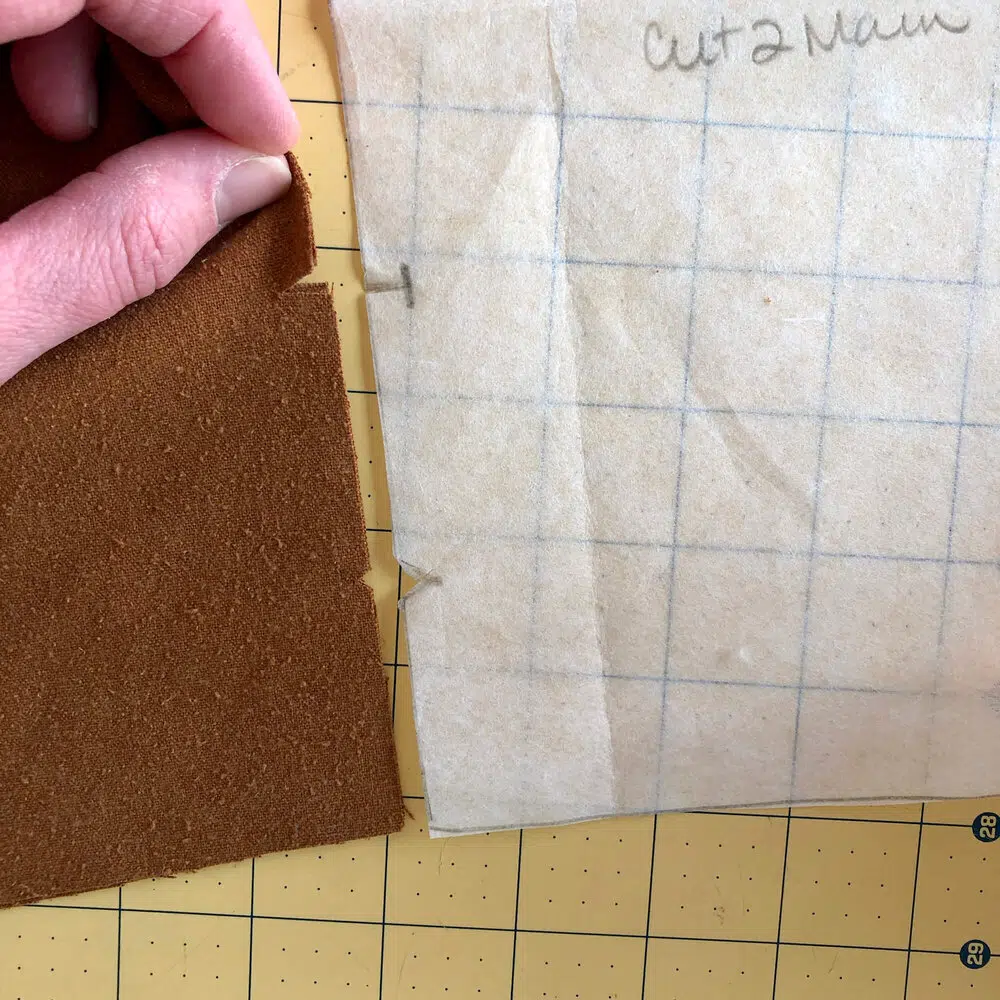 Cut 2 Main
28
29